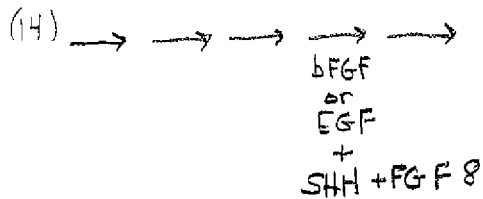 (14) → → → → →
bFGF
or
EGF
+
SHH + FGF 8